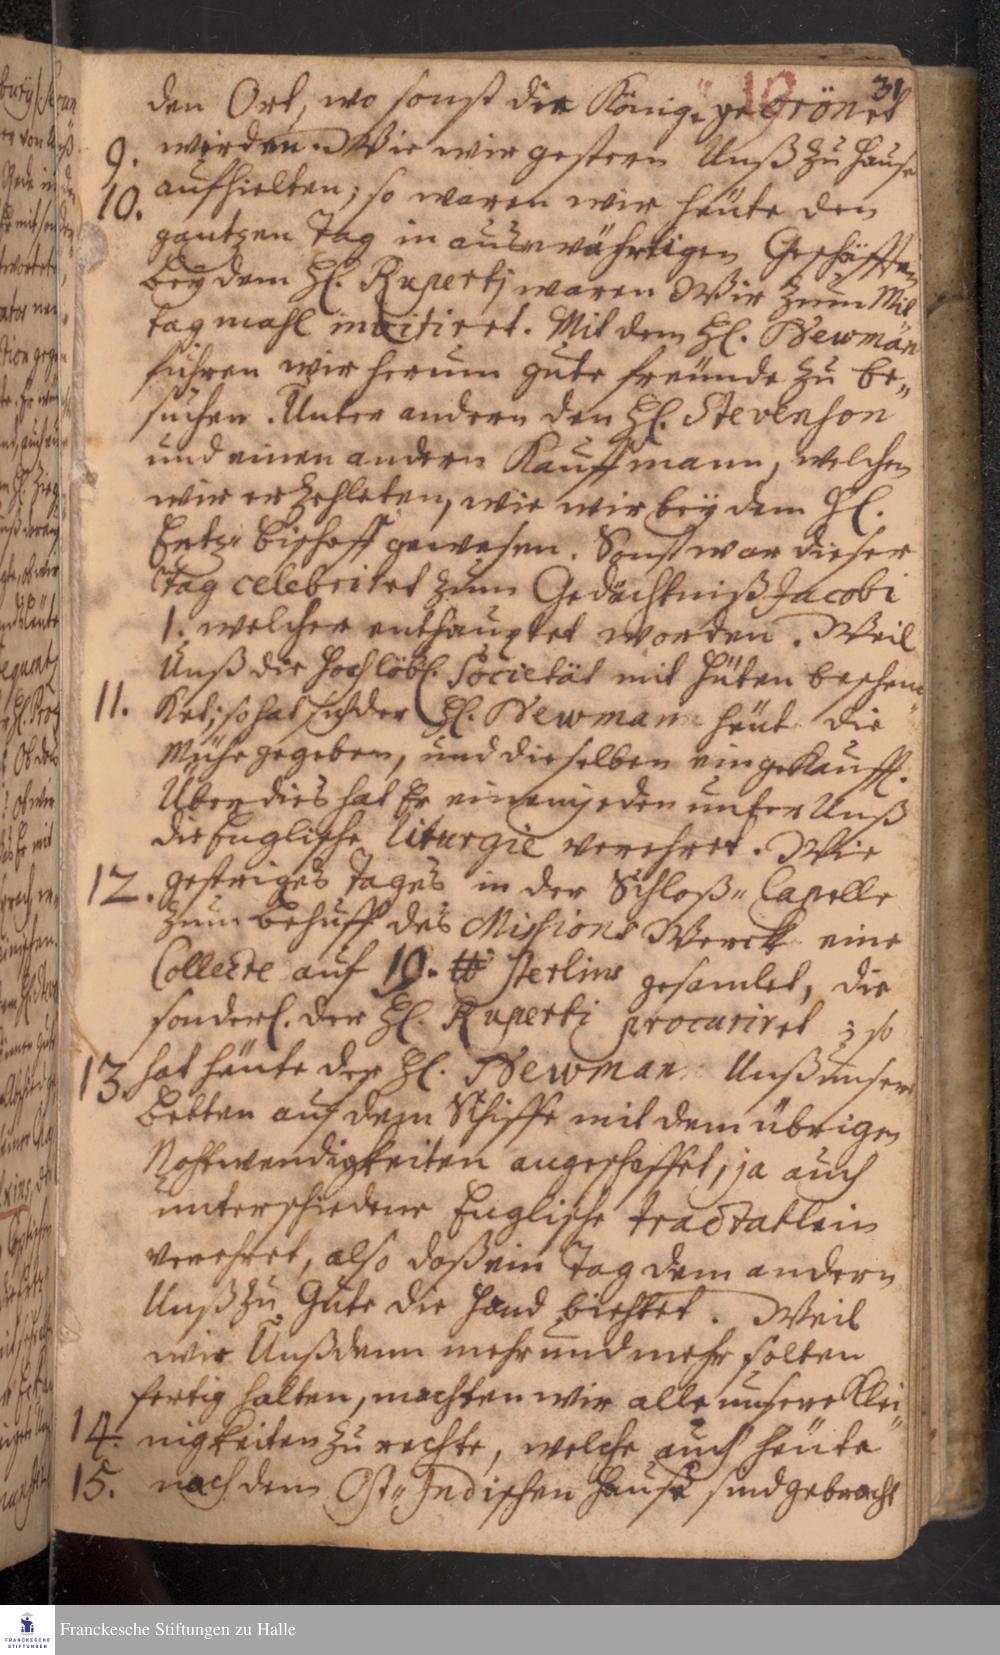 19 31
den Ort, wo sonst die König. gecrönet
9. werden. Wie wir gestern Unß zu Hause
10. aufhielten; so waren wir heüte den
gantzen Tag in auswährtigen Geschäfften
Bey dem Hl. Ruperti waren Wir zum Mit
tagmahl invitiret. Mit dem Hl. Newman
fuhren wir herum gute freünde zu be„
suchen. Unter andern den Hl. Stevenson
und einen andern Kauffmann, welchen
wir erzehleten, wie wir bey dem Hl.
Ertz„ Bischoff gewesen. Sonst war dieser
Tag celebriret zum Gedächtniß Jacobi
1. welcher enthauptet worden. Weil
Unß die Hochlöbl. Societät mit Hüten beschen„
11. ket; so hat sich der Hl. Newman heüt die
Mühe gegeben, und dieselben eingekaufft.
Über dies hat Er einem jeden unter Unß
die Englische Liturgie verehret. Wie
12. gestriges Tages in der Schloß„ Capelle
zum Behuff des Missions Wercks eine
Collecte auf 10. ℔ Sterlins gesamlet, die
sonderl. der Hl. Ruperti procuriret ; so
13. hat heüte der Hl. Newman Unß unsere
Betten auf dem Schiffe mit dem übrigen
Nohtwendigkeiten angeschaffet, ja auch
unterschiedene Englische tractatlein
verehret, also daß ein Tag dem andern
Unß zu Gute die Hand biehtet. Weil
wir Unß denn mehr und mehr solten
fertig halten, machten wir alle unsere Klei„
14. nigkeiten zu rechte, welche auch heüte
15. nach dem Ost„ Indischen Hause sind gebracht
Franckesche Stiftungen zu Halle
FRANCKESCHE
STIFTUNGEN